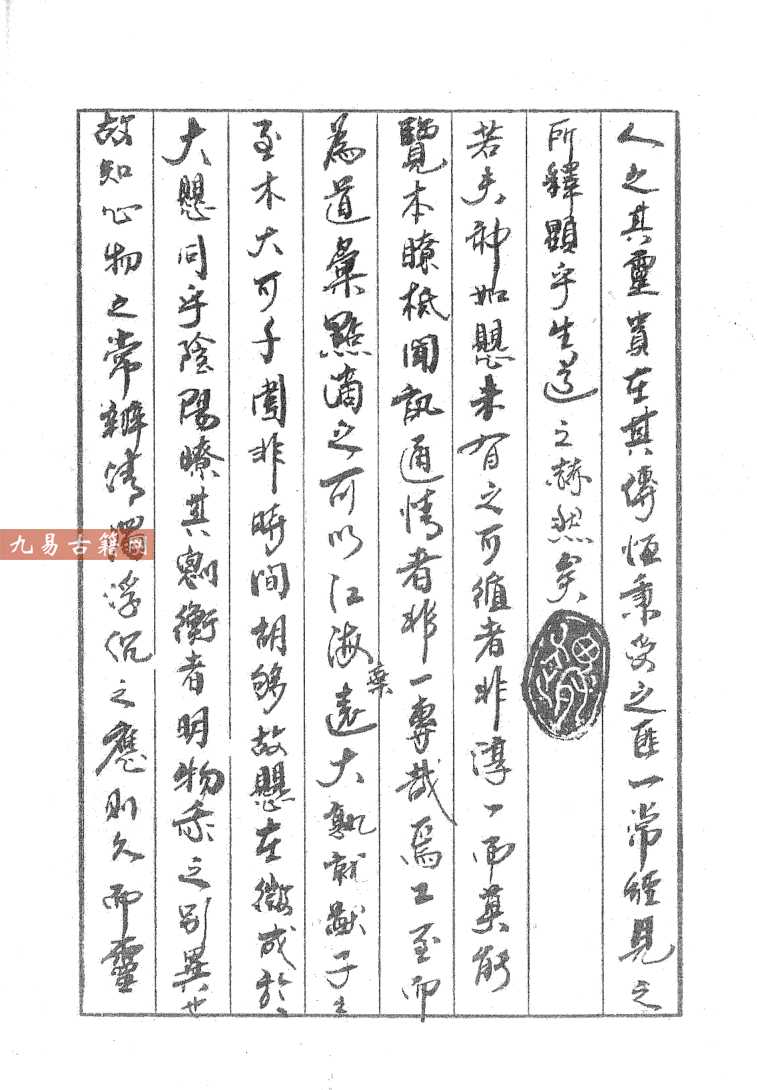 人之其靈貴在其傳恒秉受之匪一常經見之
所釋顯乎生道之赫然矣
若夫神如懸未有之可循者非淳丶而莫能
覽本瞭柢聞訊通情者非一專哉焉工至而
為道彙點滴之可以江海遠大孰就獻子生
至木大可子圍非時間胡夠故懸在微成於
大懸同乎陰陽瞭其劑衡者明物黍之別異也
故知心物之常辨清濁浮沉之應則久而靈
藥
九易古籍网